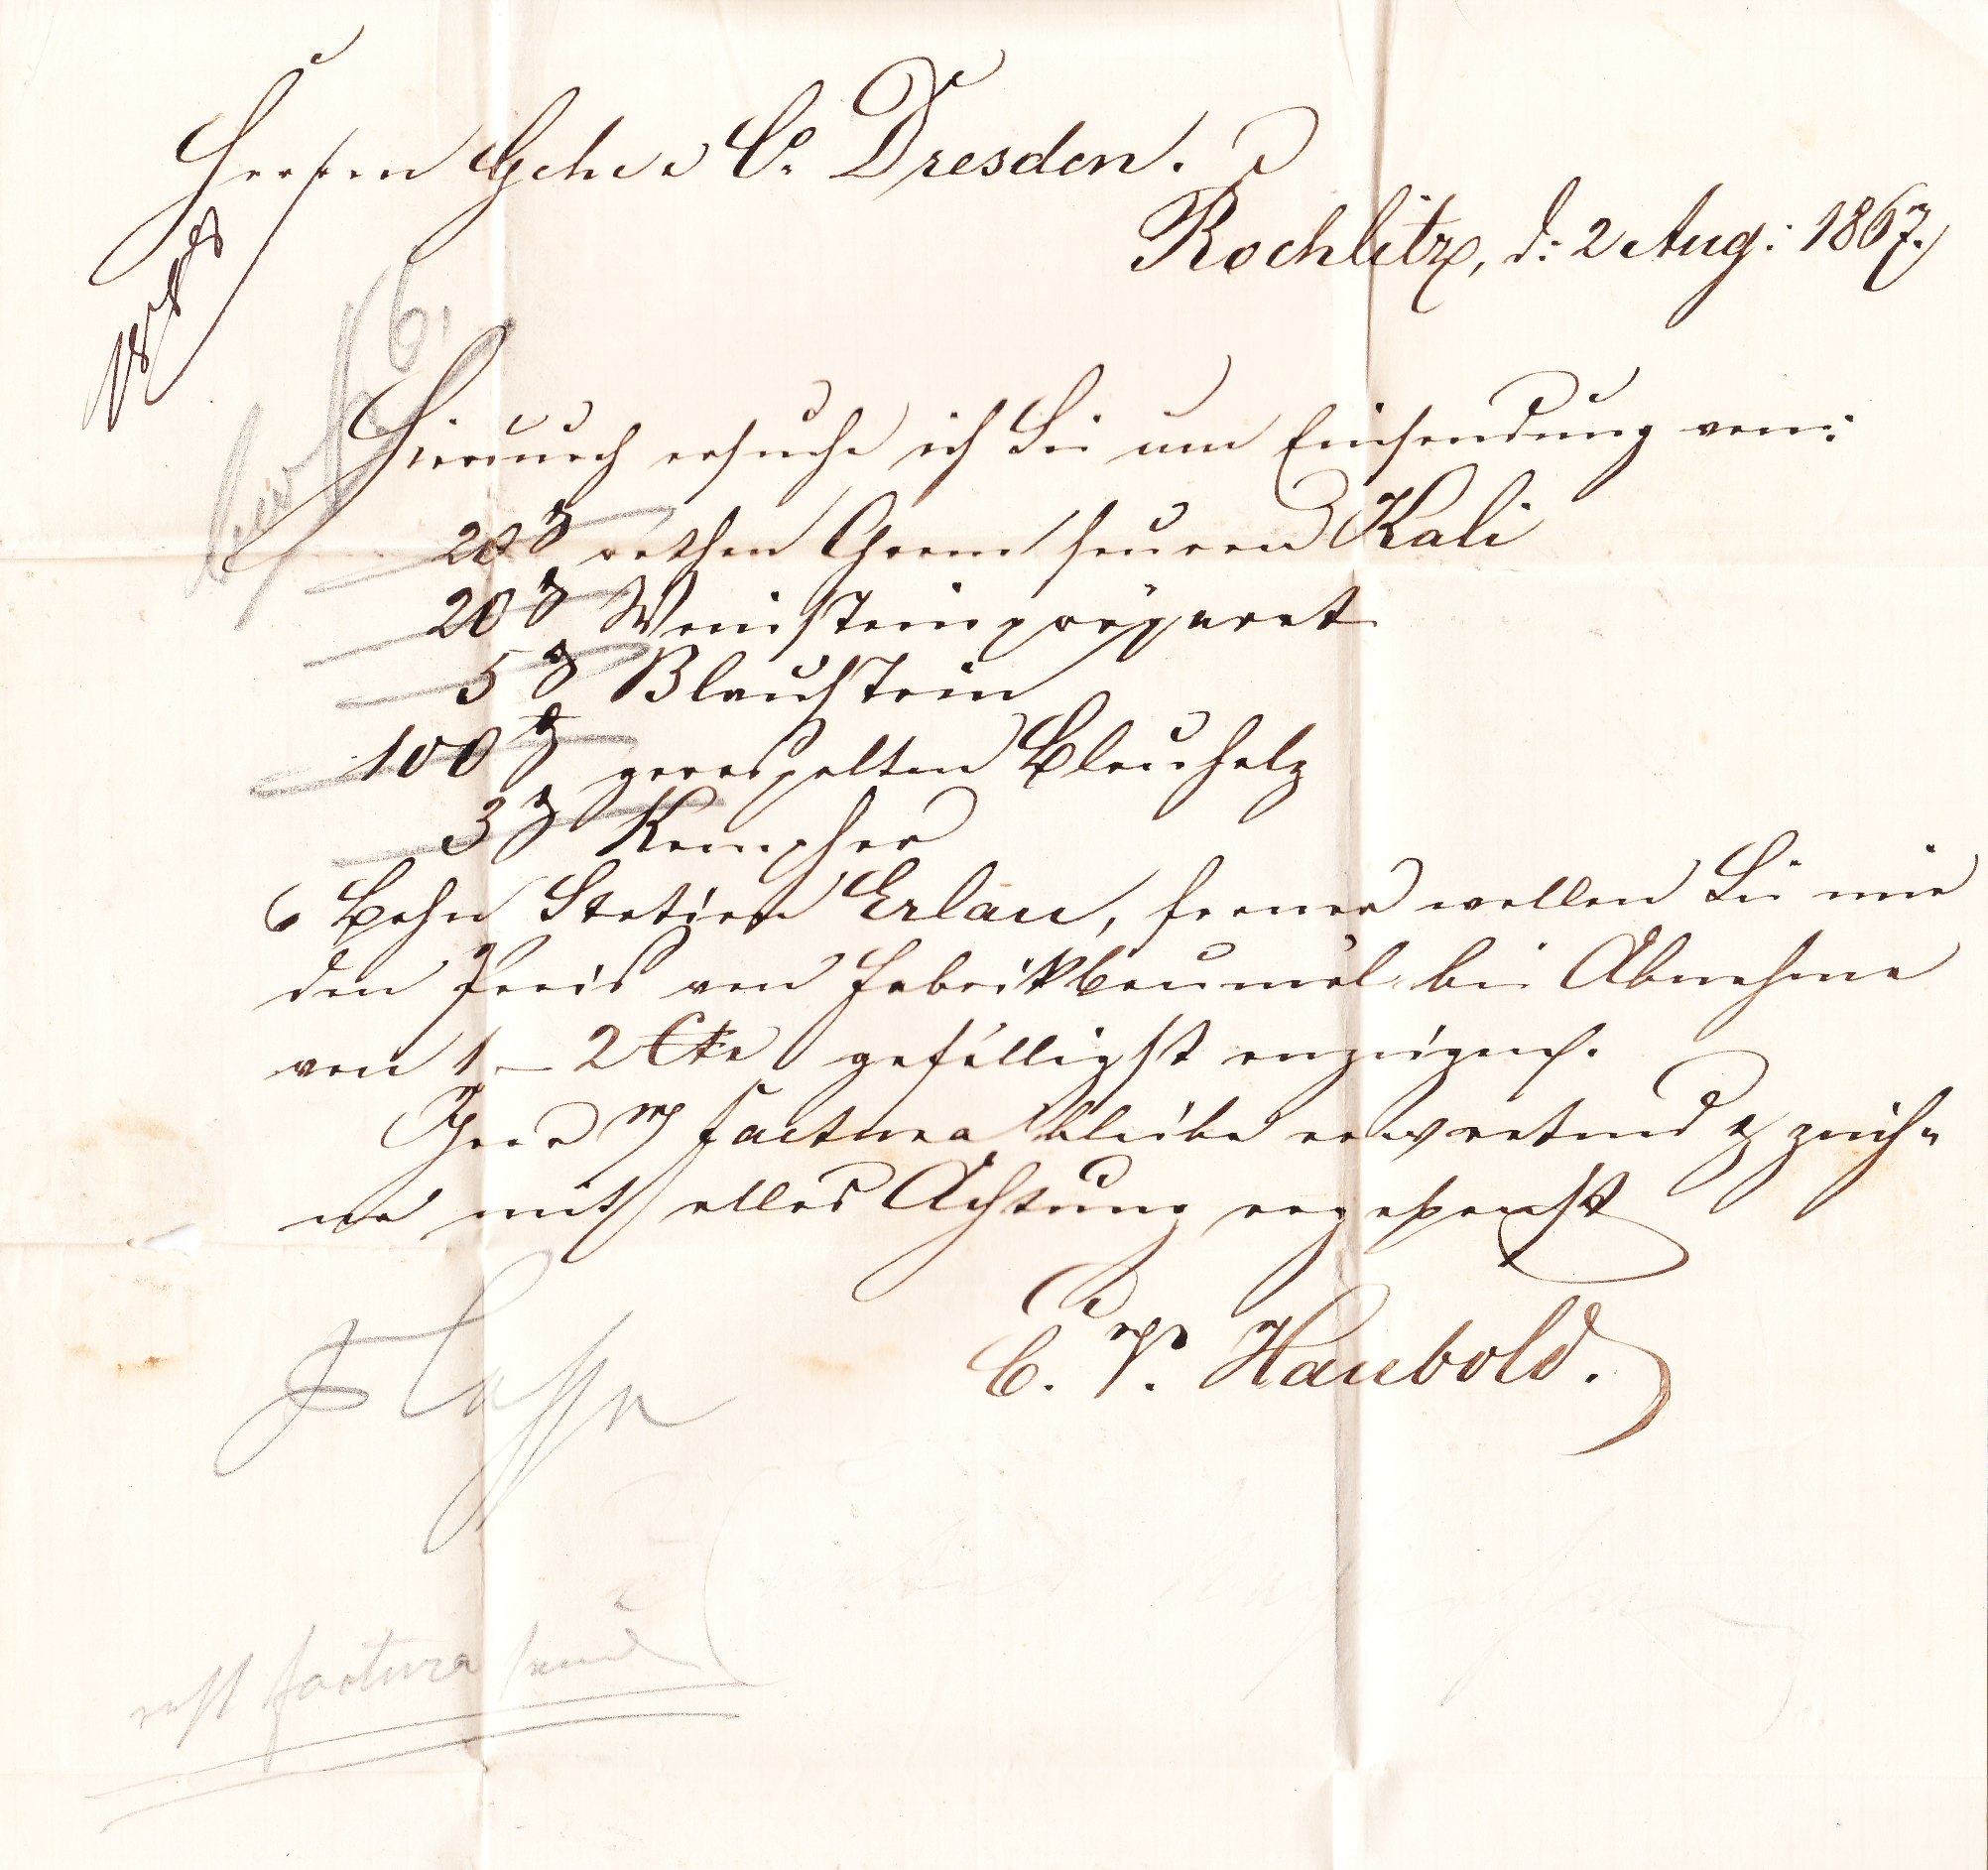 Herren Gehe & Co. Dresden.
Rochlitz, d: 2 Aug: 1867.
6.
Hierdurch ersuche ich Sie um Einsendung von:
20 ℔ rothen Chrom sauren Kali
20 ℔ Weinsteinpräparat
5 ℔ Blaustein
100 ℔ geraspelten Blauholz
3 ℔ Kampher
Bahn Station Erlau, ferner wollen Sie mir
den Preis von Fabrikbaumöl bei Abnahme
von 1 – 2 Ctr gefälligst anzeigen.
Ihre Factura bleibe erwartend & zeich=
ne mit aller Achtung ergebenst
C. F. Haubold.
Cassa
factura